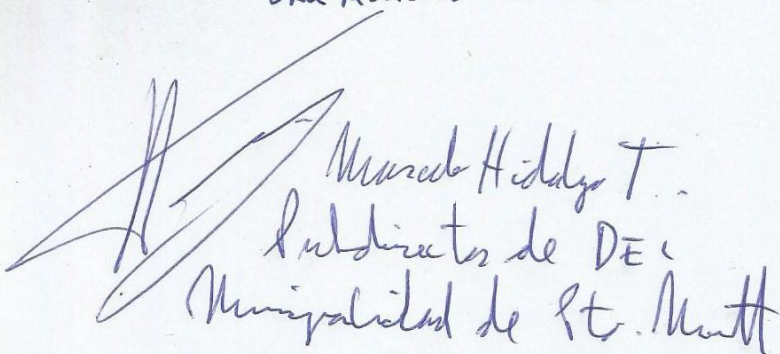 Marcelo Hidalgo T.
Subdirector de DEL
Municipalidad de Pto. Montt